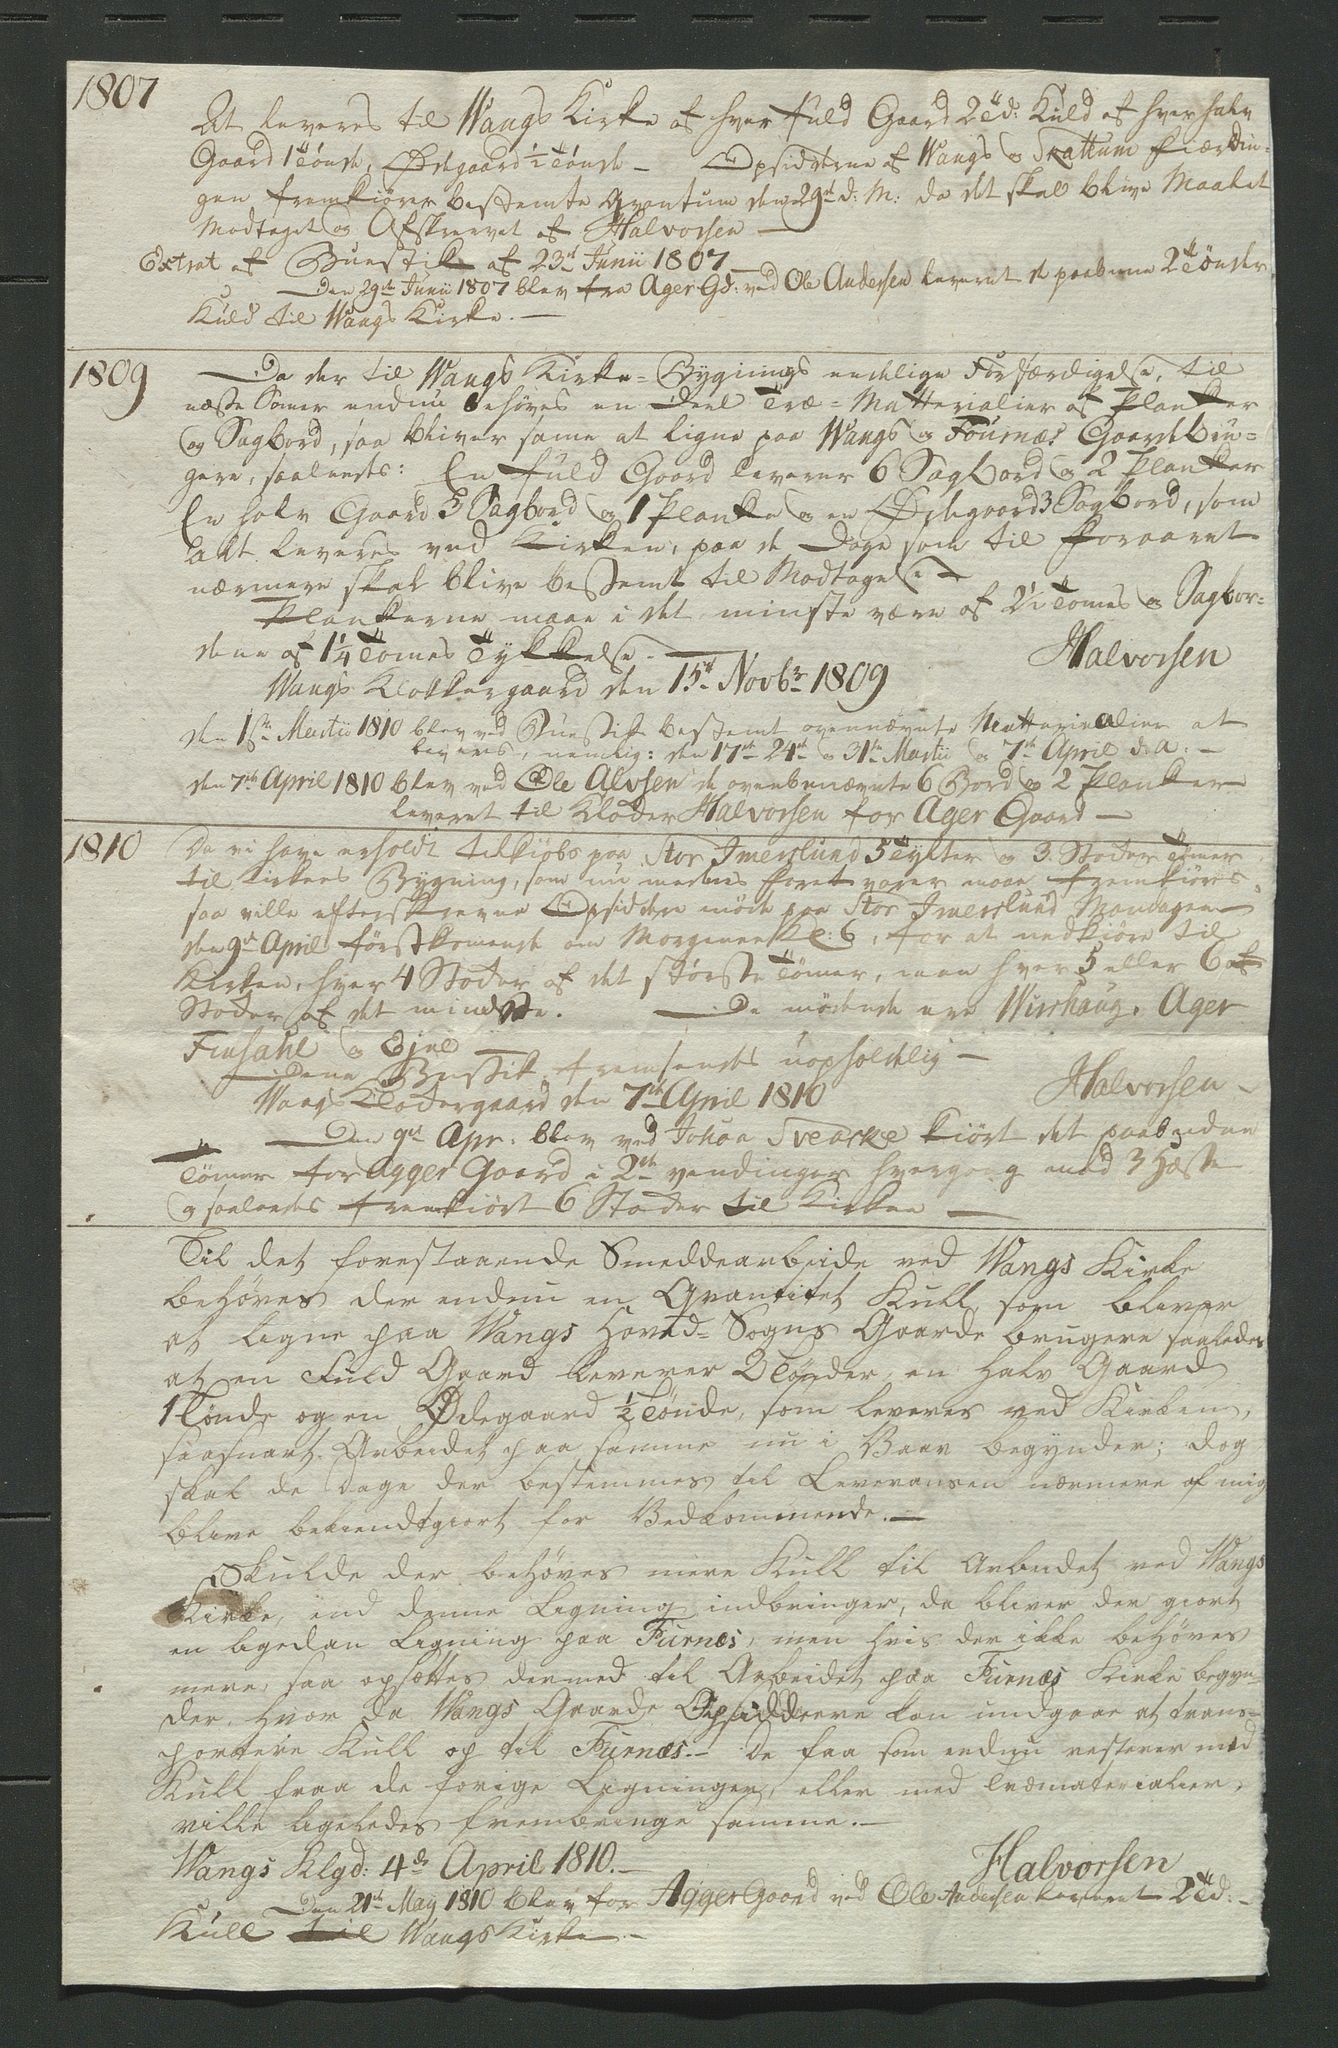 1807
At leveres til Wangs Kirke af hver fuld Gaard 2 Td: Kuld af hver halv
Gaard 1 Tønde, Ødegaard ½ Tønde – Opsidderne af Wangs og Skattum Fierdin-
gen fremkiører bestemte Qvantum den 29de d: M: da det skal blive Maalet
Modtaget og Afskrevet af Halvorsen –
Extrat af Buestik af 23de Junii 1807
Den 29de Junii 1807 blev fra Ager Gd: ved Ole Andersen leveret de paabudne 2 Tønder
Kuld til Wangs Kirke. –
1809
Da der til Wangs Kirke-Bygnings endelige Forfærdigelse, til
næste Somer endnu behøves en Deel Træ-Matterialier af Planker
og Sagbord, saa bliver same at ligne paa Wangs og Fournæs Gaardbru-
gere, saaledes: En fuld Gaard leverer 6 Sagbord og 2 Planker
En halv Gaard 5 Sagbord og 1 Planke og en Ødegaard 3 Sagbord, som
alt leveres ved Kirken, paa de Dage som til Foraaret
nærmere skal blive bestemt til Modtagelse –
Plankerne maae i det mindste være af 2½ Tomes og Sagbor-
dene af 1¼ Tomes Tykkelse. –
Halvorsen
Wangs Klokkergaard den 15de Novbr 1809
den 1ste Martii 1810 blev ved Buestik bestemt ovennævnte Matterialier at
leveres, nemlig: den 17de 24de og 31te Martii og 7de April d: A: –
den 7de April 1810 blev ved Ole Alvsen de ovenbenævnte 6 Bord og 2 Planker
leveret til Kloder Halvorsen for Ager Gaard –
1810
Da vi have erholdt tilkiøbs paa Stor Imerslund 5 Tylter og 3 Stoder Tømer
til Kirkens Bygning, som nu medens Foret varer maae fremkiøres,
saa ville efterskrevne Opsiddere møde paa Stor Imerslund Mandagen
den 9de April førstkomende om Morgenen Kl: 6, for at nedkiøre til
Kirken, hver 4 Stoder af det største Tømer, men hver 5 eller 6 af
Stoder af det mindste. – De mødende ere Wirshaug, Ager
Finsahl og Gjne –
Dene Buestik fremsendes uopholdelig –
Halvorsen –
Wangs Klodergaard den 7de April 1810
Den 9de Apr. blev ved Johan Svearke kiørt det paabudne
Tømer for Agger Gaard i 2de vendinger hvergang med 3 Hæste
og saaledes fremkiørt 6 Stoder til Kirken –
Til det forestaaende Smeddearbeide ved Wangs Kirke
behøves der endnu en Qvantitet Kull, som bliver
at ligne paa Wangs Hoved-Sogns Gaardebrugere saaledes
at en Fuld Gaard leverer 2 Tønder, en Halv Gaard
1 Tønde og en Ødegaard ½ Tønde, som leveres ved Kirken,
saasnart Arbeidet paa samme nu i Vaar begynder; dog
skal de Dage der bestemmes til Leveransen nærmere af mig
blive bekiendtgiort for Vedkommende. –
Skulde der behøves mere Kull til Arbeidet ved Wangs
Kirke, end denne Ligning indbringer, da bliver der giort
en ligedan Ligning paa Furnæs, men hvis der ikke behøves
mere, saa opsættes dermed til Arbeidet paa Furnæs Kirke begyn-
der, hvor da Wangs Gaarde Opsiddere kan undgaae at trans-
portere Kull op til Furnæs. – De faa som endnu resterer med
Kull fraa de forige Ligninger, eller med Træmaterialier,
ville ligeledes frembringe samme. –
Wangs Klgd: 4de April 1810. –
Halvorsen
Den 21de May 1810 blev for Agger Gaard ved Ole Andersen leveret 2 Td: –
Kull til Wangs Kirke –